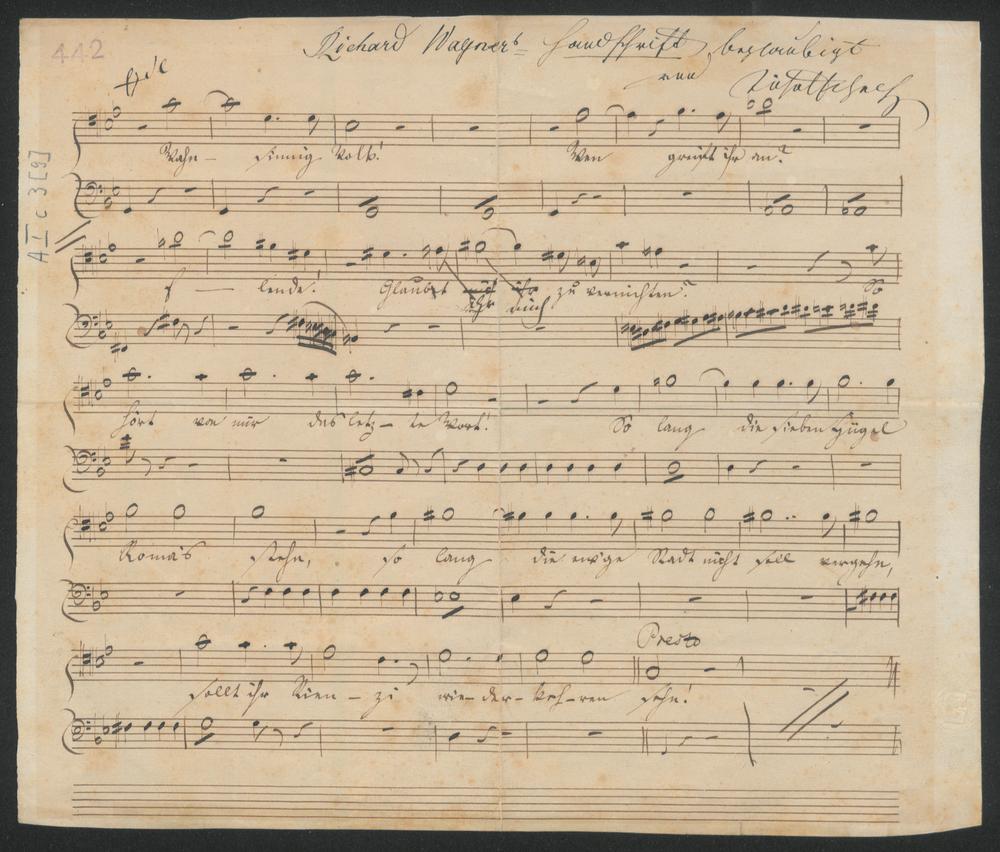 442
Richard Wagners Handschrift, beglaubigt
von Tichatscheck
A I c 3 [9]
Wahn - sinnig Volk! Wen greift ihr an?
E — lende! Glaubt ihr mich zu vernichten? So
hört von mir das letz - te Wort! So lang die sieben Hügel
Roma's stehn, so lang die ew'ge Stadt nicht soll vergehn,
Presto
sollt ihr Rien - zi wie - der - keh - ren sehn!